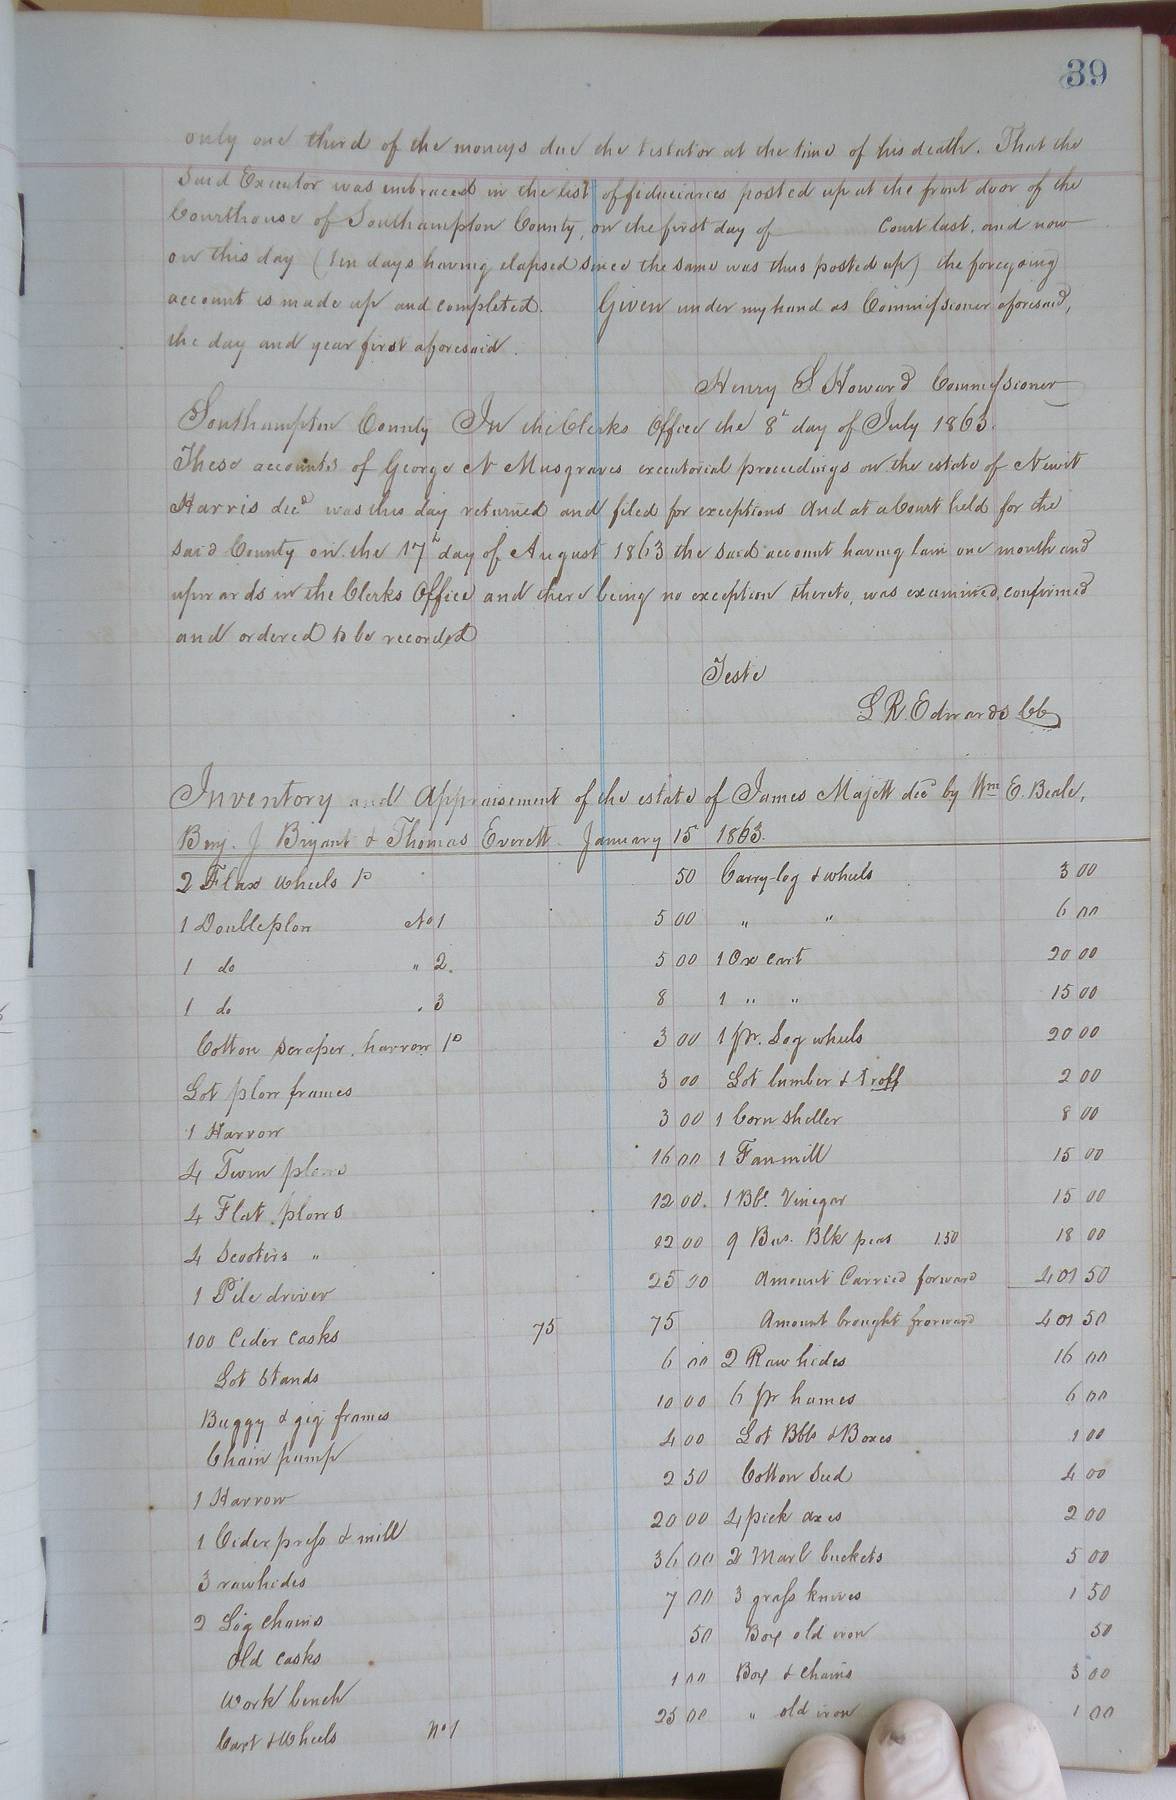 39
only one third of the moneys due the testator at the time of his death. That the
said Executor was embraced in the list of fiduciaries posted up at the front door of the
Courthouse of Southampton County, on the first day of Court last, and now
on this day (ten days having elapsed since the same was thus posted up) the foregoing
account is made up and completed. Given under my hand as Commissioner aforesaid,
the day and year first aforesaid.
Henry S Howard Commissioner
Southampton County In the Clerks Office the 8th day of July 1863.
These accounts of George N Musgraves executorial proceedings on the estate of Newit
Harris decd was this day returned and filed for exceptions And at a Court held for the
said County on the 17th day of August 1863 the said account having lain one month and
upwards in the Clerks Office and there being no exception thereto, was examined, confirmed
and ordered to be recorded
Teste
L R. Edwards CC
Inventory and Appraisement of the estate of James Majett decd by Wm E. Beale,
Benj. J Bryant & Thomas Everett January 15 1863.
2 Flax Wheels 50 Carry-log & wheels 3 00
1 Double plow No 1 5 00 " " 6 00
1 do " 2. 5 00 1 Ox cart 20 00
1 do " 3 8 1 " " 15 00
Cotton scraper, harrow 3 00 1 pr. Log wheels 20 00
Lot plow frames 3 00 Lot lumber & troff 2 00
1 Harrow 3 00 1 Corn Sheller 8 00
4 Turn plows 16 00 1 Fanmill 15 00
4 Flat plows 12 00. 1 Bbl. Vinegar 15 00
4 Scooters " 22 00 9 Bus. Blk peas 1.50 18 00
1 Pile driver 25 00 Amount Carried forward 401 50
100 Cider Casks 75 75 Amount brought frorward 401 50
Lot Stands 6 00 2 Raw hides 16 00
Buggy & gig frames 10 00 6 pr hames 6 00
Chain pump 4 00 Lot Bbls & Boxes 1 00
1 Harrow 2 50 Cotton Seed 4 00
1 Cider press & mill 20 00 4 pick axes 2 00
3 rawhides 36 00 2 Marl buckets 5 00
2 Log Chains 7 00 3 grass knives 1 50
Old Casks 50 Box old iron 50
Work bench 1 00 Box & Chains 3 00
Cart & Wheels No 1 25 00 " old iron 1 00